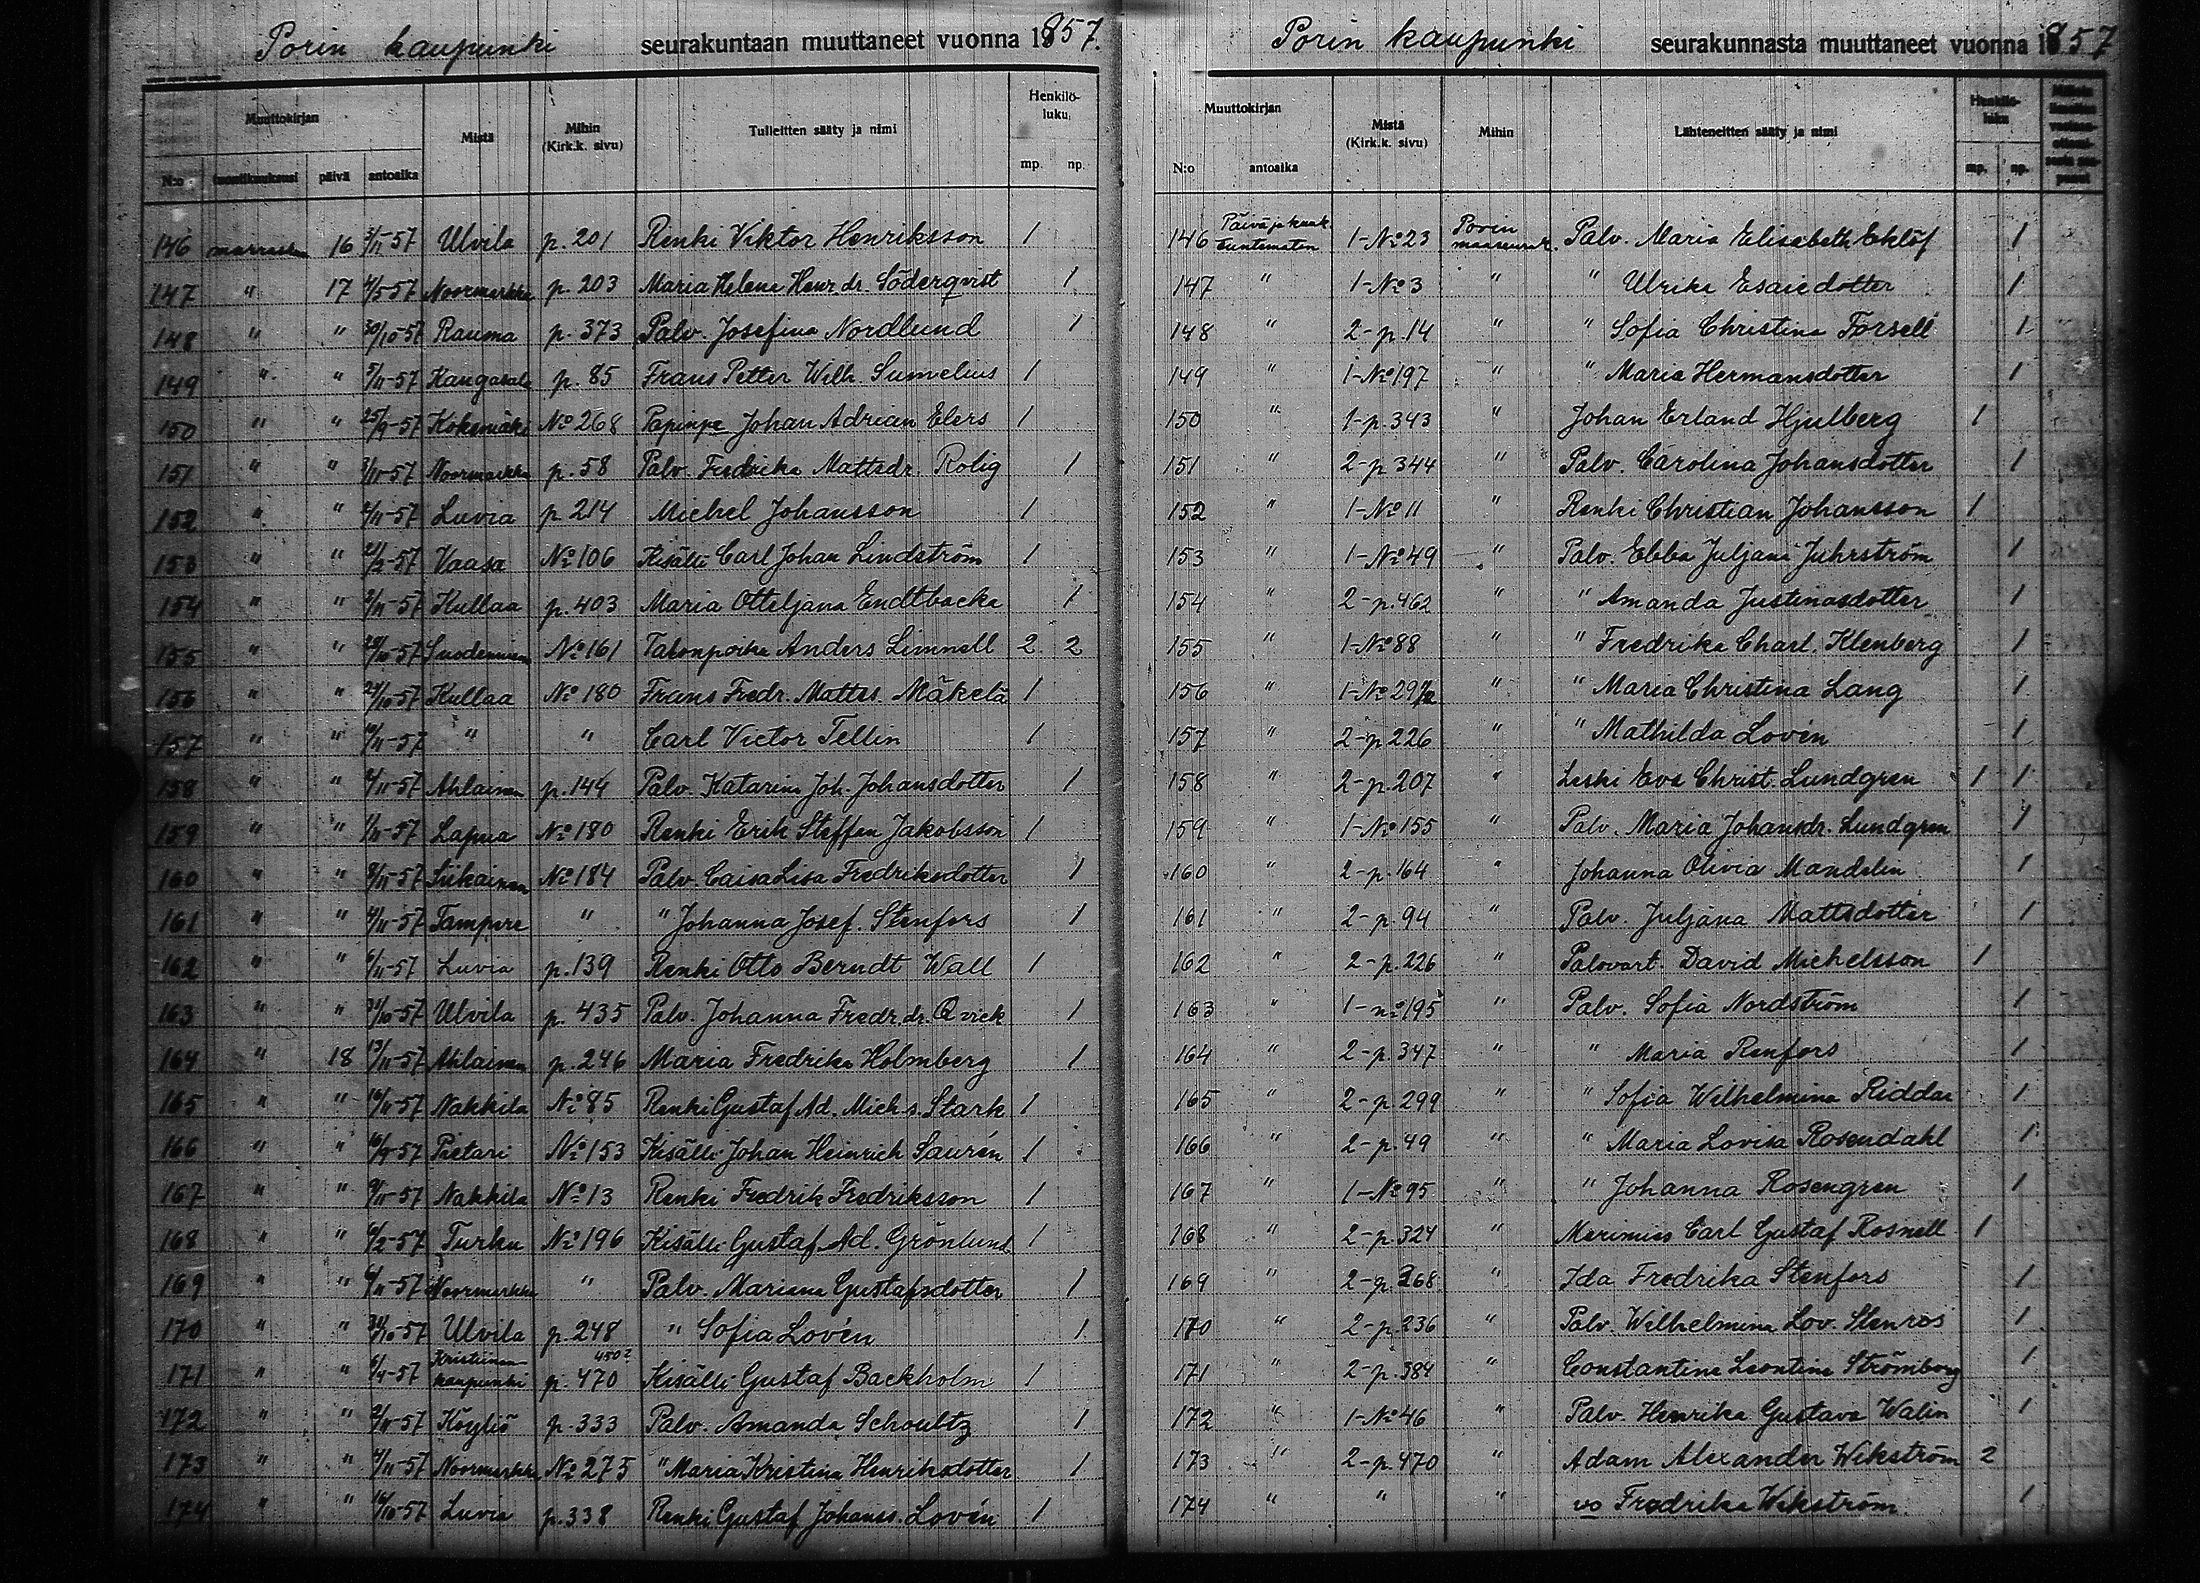 Porin kaupunki seurakuntaan muuttaneet vuonna 1857.
Muuttokirjan
Mistä
Mihin (Kirk.k. sivu)
Tulleitten sääty ja nimi
Henkilöluku
N:o päivä antoaika mp. np.
146 marrask. 16 3/11-57 Ulvila p. 201 Renki Viktor Henriksson 1
147 " 17 4/5 57 Noormarkku p. 203 Maria Helena Henr. dr. Söderqvist 1
148 " " 30/10-57 Rauma p. 373 Palv. Josefina Nordlund 1
149 " " 5/11-57 Kangasala p. 85 Frans Petter Wilh. Sumelius 1
150 " " 25/9-57 Kokemäki No 268 Johan Adrian Elers 1
151 " " 3/11-57 Noormarkku p. 58 Palv. Fredrika Mattsdr. Rolig 1
152 " " 2/11-57 Luvia p. 214 Michel Johansson 1
153 " " 21/2-57 Vaasa No 106 Kisälli Carl Johan Lindström 1
154 " " 2/11-57 Kullaa p. 403 Maria Otteljana Endtbacka 1
155 " " 28/10-57 Suodenniemi No 161 Talonpoika Anders Limnell 2 2
156 " " 24/10-57 Kullaa No 180 Frans Fredr. Matts. Mäkelä 1
157 " " 10/11-57 " " Carl Victor Tellin 1
158 " " 2/11-57 Ahlainen p. 144 Palv. Katarina Joh. Johansdotter 1
159 " " 1/11-57 Lapua No 180 Renki Erik Steffan Jakobsson 1
160 " " 8/11-57 Siikainen No 184 Palv. Caisa Lisa Fredriksdotter 1
161 " " 4/11-57 Tampere " " Johanna Josef. Stenfors 1
162 " " 6/11-57 Luvia p. 139 Renki Otto Berndt Wall 1
163 " " 31/10-57 Ulvila p. 435 Palv. Johanna Fredr. dr. Qvick 1
164 " 18 13/11-57 Ahlainen p. 246 Maria Fredrika Holmberg 1
165 " " 16/11-57 Nakkila No 85 Renki Gustaf Ad. Mich s. Stark 1
166 " " 16/9-57 Pietari No 153 Kisälli Johan Heinrich Saurén 1
167 " " 9/11-57 Nakkila No 13 Renki Fredrik Fredriksson 1
168 " " 6/2-57 Turku No 196 Kisälli Gustaf Ad. Grönlund 1
169 " " 6/11-57 Noormarkku " Palv. Mariana Gustafsdotter 1
170 " " 31/10-57 Ulvila p. 248 " Sofia Lovén 1
171 " " 6/4-57 Kristiinankaupunki p. 470 450? Kisälli Gustaf Backholm 1
172 " " 2/11-57 Köyliö p. 333 Palv. Amanda Schoultz 1
173 " " 4/11-57 Noormarkku No 275 " Maria Kristina Henriksdotter 1
174 " " 16/10-57 Luvia p. 338 Renki Gustaf Johanss. Lovén 1
Porin kaupunki seurakunnasta muuttaneet vuonna 1857
Muuttokirjan
Mistä (Kirk.k. sivu)
Mihin
Lähteneitten sääty ja nimi
Henkilöluku
N:o antoaika mp. np.
146 Päivä ja kuuk. tuntematon 1-No 23 Porin maaseurak. Palv. Maria Elisabeth Eklöf 1
147 " 1-No 3 " " Ulrika Esaiedotter 1
148 " 2-p. 14 " " Sofia Christina Forsell 1
149 " 1-No 197 " " Maria Hermansdotter 1
150 " 1-p. 343 " Johan Erland Hjulberg 1
151 " 2-p. 344 " Palv. Carolina Johansdotter 1
152 " 1-No 11 " Renki Christian Johansson 1
153 " 1-No 49 " Palv. Ebba Juljana Juhrström 1
154 " 2-p. 462 " " Amanda Justinasdotter 1
155 " 1-No 88 " " Fredrika Charl. Klenberg 1
156 " 1-No 29 " " Maria Christina Lang 1
157 " 2-p 226 " " Mathilda Lovén 1
158 " 2-p. 207 " Leski Eva Christ. Lundgren 1 1
159 " 1-No 155 " Palv. Maria Johansdr. Lundgren 1
160 " 2-p. 164 " Johanna Olivia Mandelin 1
161 " 2-p. 94 " Palv. Juljana Mattsdotter 1
162 " 2-p. 226 " Palovart. David Michelsson 1
163 " 1-no 195 " Palv. Sofia Nordström 1
164 " 2-p. 347 " " Maria Renfors 1
165 " 2-p 299 " " Sofia Wilhelmina Riddar 1
166 " 2-p. 49 " " Maria Lovisa Rosendahl 1
167 " 1-No 95 " " Johanna Rosengren 1
168 " 2-p. 324 " Merimies Carl Gustaf Rosnell 1
169 " 2-p. 268 " Ida Fredrika Stenfors 1
170 " 2-p. 236 " Palv. Wilhelmina Lov. Stenros 1
171 " 2-p. 384 " Constantina Leontina Strömborg 1
172 " 1-No 46 " Palv. Henrika Gustava Walin 1
173 " 2-p. 470 " Adam Alexander Wikström 2
174 " " " vo Fredrika Wikström 1